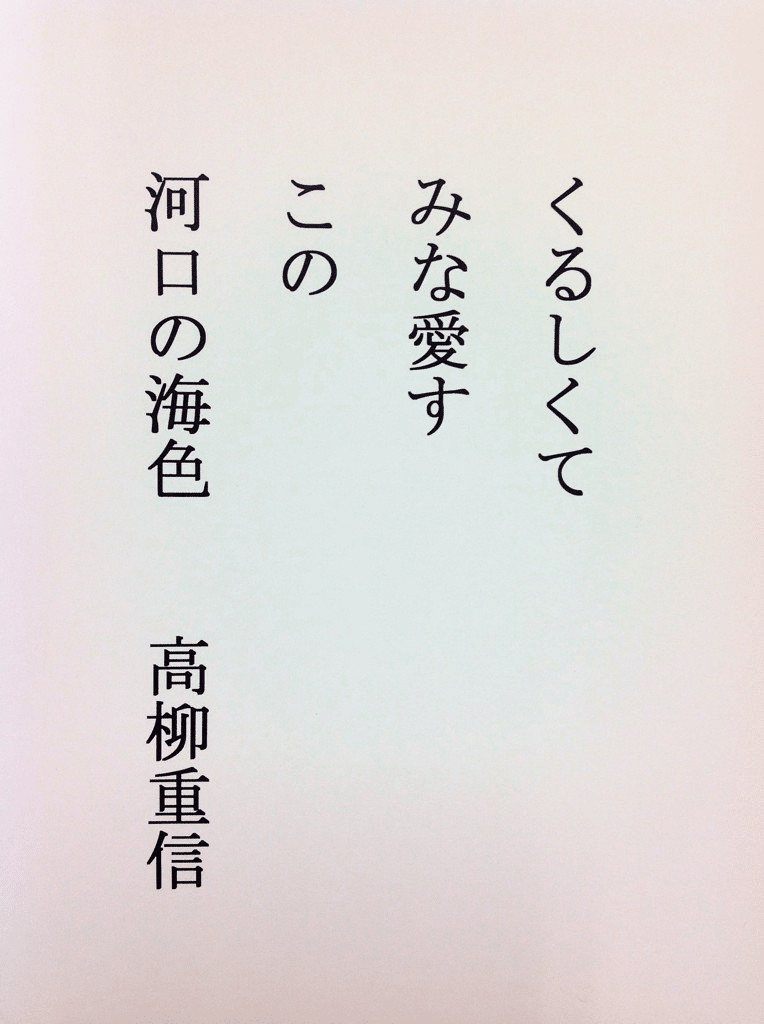 くるしくて
みな愛す
この
河口の海色　高柳重信